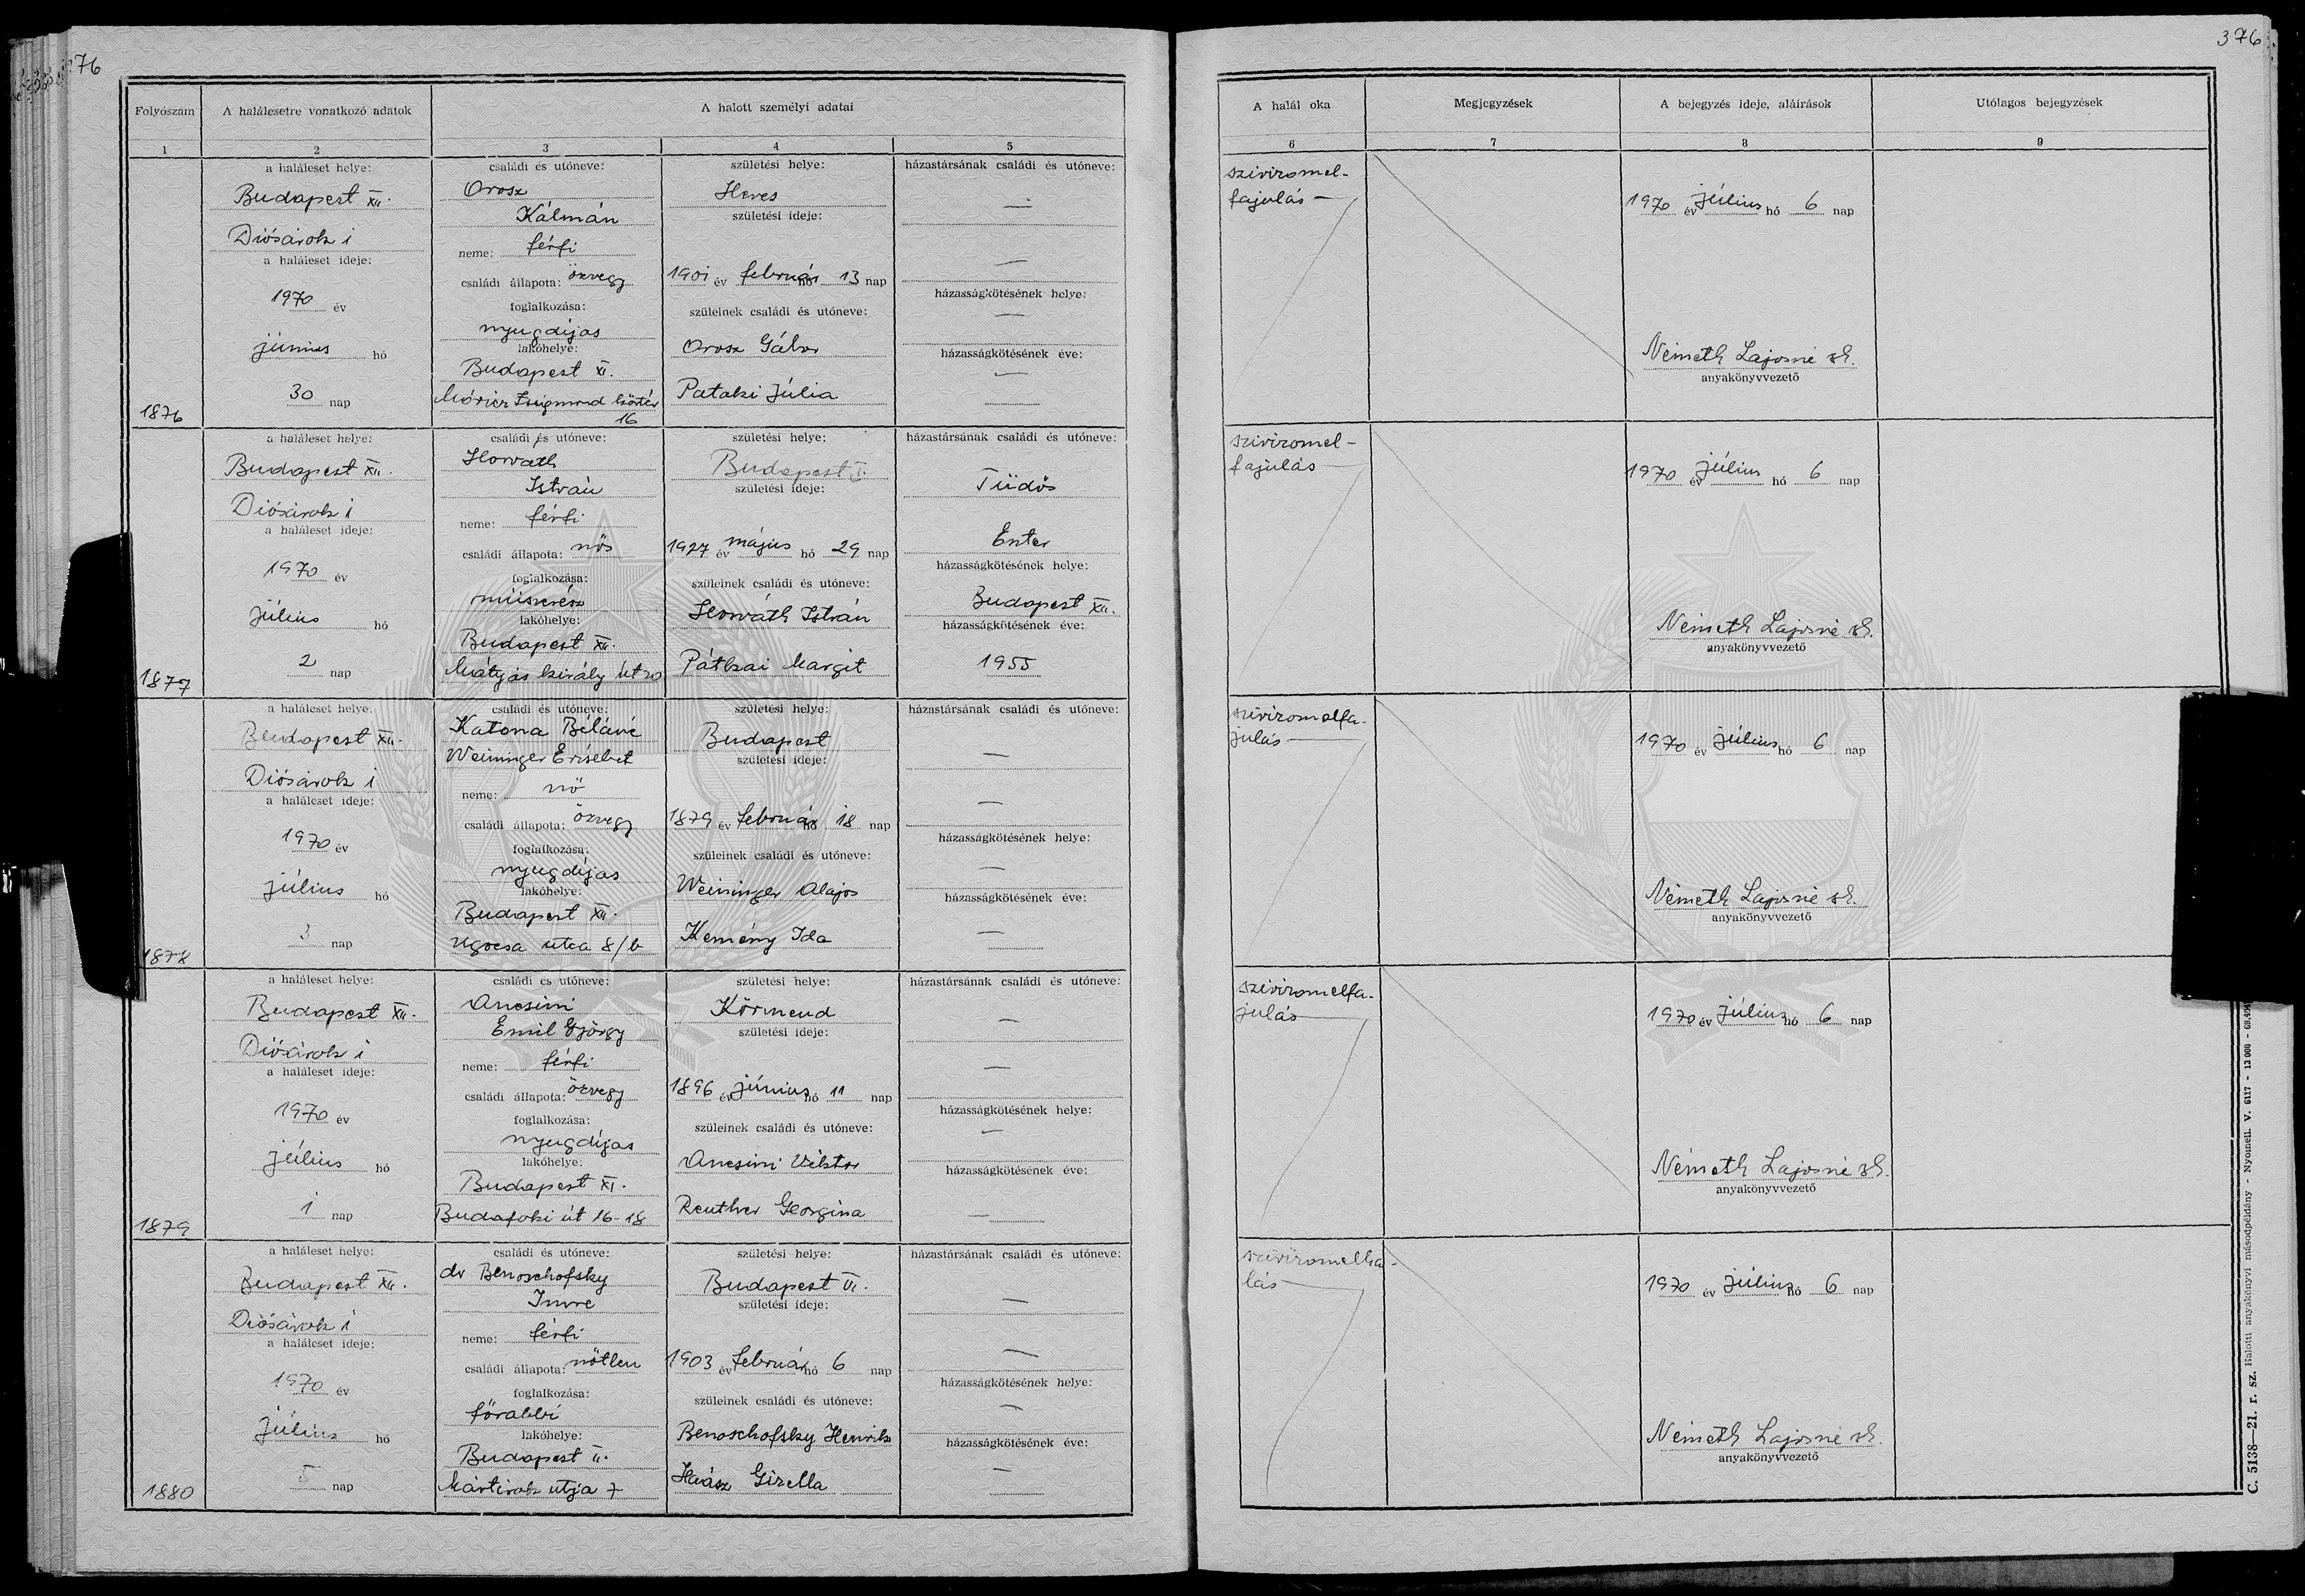 76
376
Folyószám
A halálesetre vonatkozó adatok
A halott személyi adatai
A halál oka
Megjegyzések
A bejegyzés ideje, aláírások
Utólagos bejegyzések
1 2 3 4 5 6 7 8 9
1876
a haláleset helye:
Budapest XII.
Diósárok 1
a haláleset ideje:
1970 év
június hó
30 nap
családi és utóneve:
Orosz
Kálmán
neme: férfi
családi állapota: özvegy
foglalkozása:
nyugdíjas
lakóhelye:
Budapest XI.
Móricz Zsigmond körtér
16
születési helye:
Heves
születési ideje:
1901 év február hó 13 nap
szüleinek családi és utóneve:
Orosz Gábor
Pataki Júlia
házastársának családi és utóneve:
—
—
házasságkötésének helye:
—
házasságkötésének éve:
—
szívizomel-
fajulás —
1970 év július hó 6 nap
Németh Lajosné sk.
anyakönyvvezető
1877
a haláleset helye:
Budapest XII.
Diósárok 1
a haláleset ideje:
1970 év
július hó
2 nap
családi és utóneve:
Horváth
István
neme: férfi
családi állapota: nős
foglalkozása:
műszerész
lakóhelye:
Budapest XII.
Mátyás király út 20
születési helye:
Budapest I.
születési ideje:
1927 év május hó 29 nap
szüleinek családi és utóneve:
Horváth István
Pátkai Margit
házastársának családi és utóneve:
Tüdős
Eszter
házasságkötésének helye:
Budapest XII.
házasságkötésének éve:
1955
szívizomel-
fajulás —
1970 év július hó 6 nap
Németh Lajosné sk.
anyakönyvvezető
1878
a haláleset helye:
Budapest XII.
Diósárok 1
a haláleset ideje:
1970 év
július hó
3 nap
családi és utóneve:
Katona Béláné
Weininger Erzsébet
neme: nő
családi állapota: özvegy
foglalkozása:
nyugdíjas
lakóhelye:
Budapest XII.
Ugocsa utca 8/b
születési helye:
Budapest
születési ideje:
1879 év február hó 18 nap
szüleinek családi és utóneve:
Weininger Alajos
Kemény Ida
házastársának családi és utóneve:
—
—
házasságkötésének helye:
—
házasságkötésének éve:
—
szívizomelfa-
julás —
1970 év július hó 6 nap
Németh Lajosné sk.
anyakönyvvezető
1879
a haláleset helye:
Budapest XII.
Diósárok 1
a haláleset ideje:
1970 év
július hó
1 nap
családi és utóneve:
Ancsini
Emil György
neme: férfi
családi állapota: özvegy
foglalkozása:
nyugdíjas
lakóhelye:
Budapest XI.
Budafoki út 16-18
születési helye:
Körmend
születési ideje:
1896 év június hó 11 nap
szüleinek családi és utóneve:
Ancsini Viktor
Reuther Georgina
házastársának családi és utóneve:
—
—
házasságkötésének helye:
—
házasságkötésének éve:
—
szívizomelfa-
julás —
1970 év július hó 6 nap
Németh Lajosné sk.
anyakönyvvezető
1880
a haláleset helye:
Budapest XII.
Diósárok 1
a haláleset ideje:
1970 év
július hó
5 nap
családi és utóneve:
dr Benoschofsky
Imre
neme: férfi
családi állapota: nőtlen
foglalkozása:
főrabbi
lakóhelye:
Budapest II.
Mártirok utja 7
születési helye:
Budapest VI.
születési ideje:
1903 év február hó 6 nap
szüleinek családi és utóneve:
Benoschofsky Henrik
Haász Gizella
házastársának családi és utóneve:
—
—
házasságkötésének helye:
—
házasságkötésének éve:
—
szívizomelha-
lás —
1970 év július hó 6 nap
Németh Lajosné sk.
anyakönyvvezető
C. 5138—21. r. sz. Halotti anyakönyvi másodpéldány - Nyomell. V. 6117 - 12 000 -